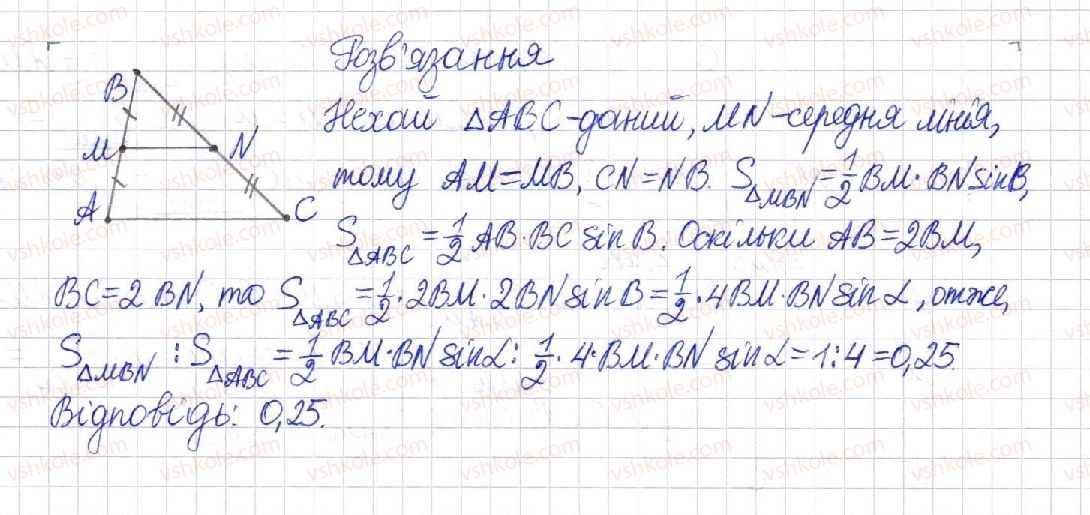 Розв'язання
Нехай △ABC-даний, MN-середня лінія,
тому AM=MB, CN=NB. S△MBN=1/2 BM·BN sinB,
S△ABC=1/2 AB·BC sin B. Оскільки AB=2BM,
BC=2BN, то S△ABC=1/2·2BM·2BN sin B=1/2·4BM·BN sin α, отже,
S△MBN : S△ABC=1/2 BM·BN sin α : 1/2·4·BM·BN sin α=1:4=0,25.
Відповідь: 0,25.
B
M
N
A
C
vshkole.com